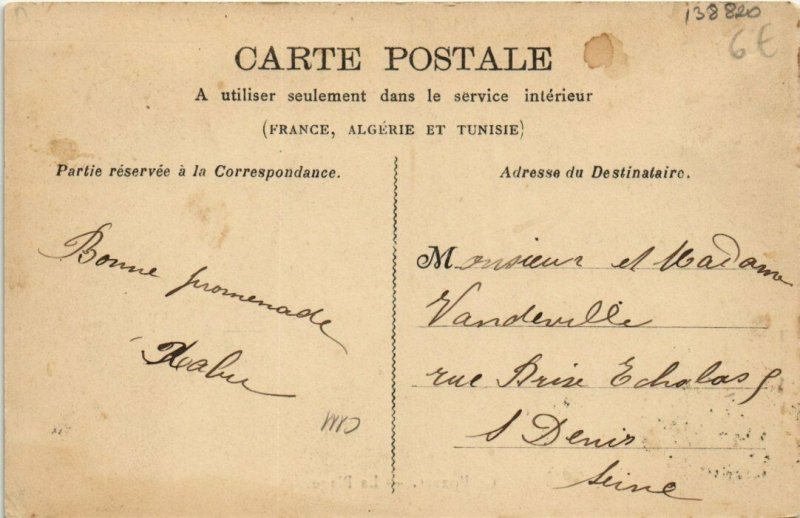 138820
6€
CARTE POSTALE
A utiliser seulement dans le service intérieur
(FRANCE, ALGÉRIE ET TUNISIE)
Partie réservée à la Correspondance.
Bonne promenade
CIM
Adresse du Destinataire.
Monsieur et Madame
Vandeville
rue Brise Echalas
S Denis
Seine